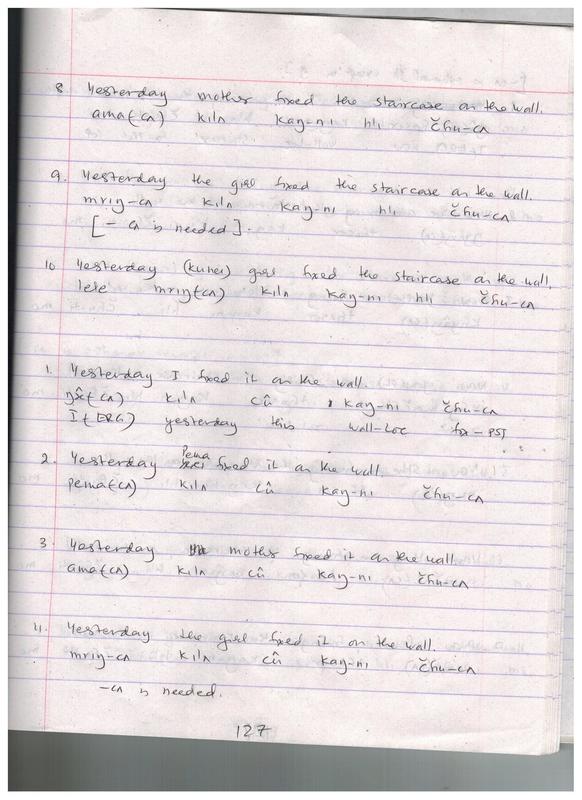 8 Yesterday mother fixed the staircase on the wall.
ama(cʌ) kilʌ kaŋ-ni hli čhu-cʌ
9. Yesterday the girl fixed the staircase on the wall.
mriŋ-cʌ kilʌ kaŋ-ni hli čhu-cʌ
[-cʌ is needed].
10 Yesterday (kuhei) girl fixed the staircase on the wall.
lese mriŋ(cʌ) kilʌ kaŋ-ni hli čhu-cʌ
1. Yesterday I fixed it on the wall.
(cʌ) kilʌ cû kaŋ-ni čhu-cʌ
I(ERG) yesterday this wall-LOC fix-PST
2. Yesterday Pema fixed it on the wall.
pema(cʌ) kilʌ cû kaŋ-ni čhu-cʌ
3. Yesterday mother fixed it on the wall.
ama(cʌ) kilʌ cû kaŋ-ni čhu-cʌ
4. Yesterday the girl fixed it on the wall.
mriŋ-cʌ kilʌ cû kaŋ-ni čhu-cʌ
-cʌ is needed.
127